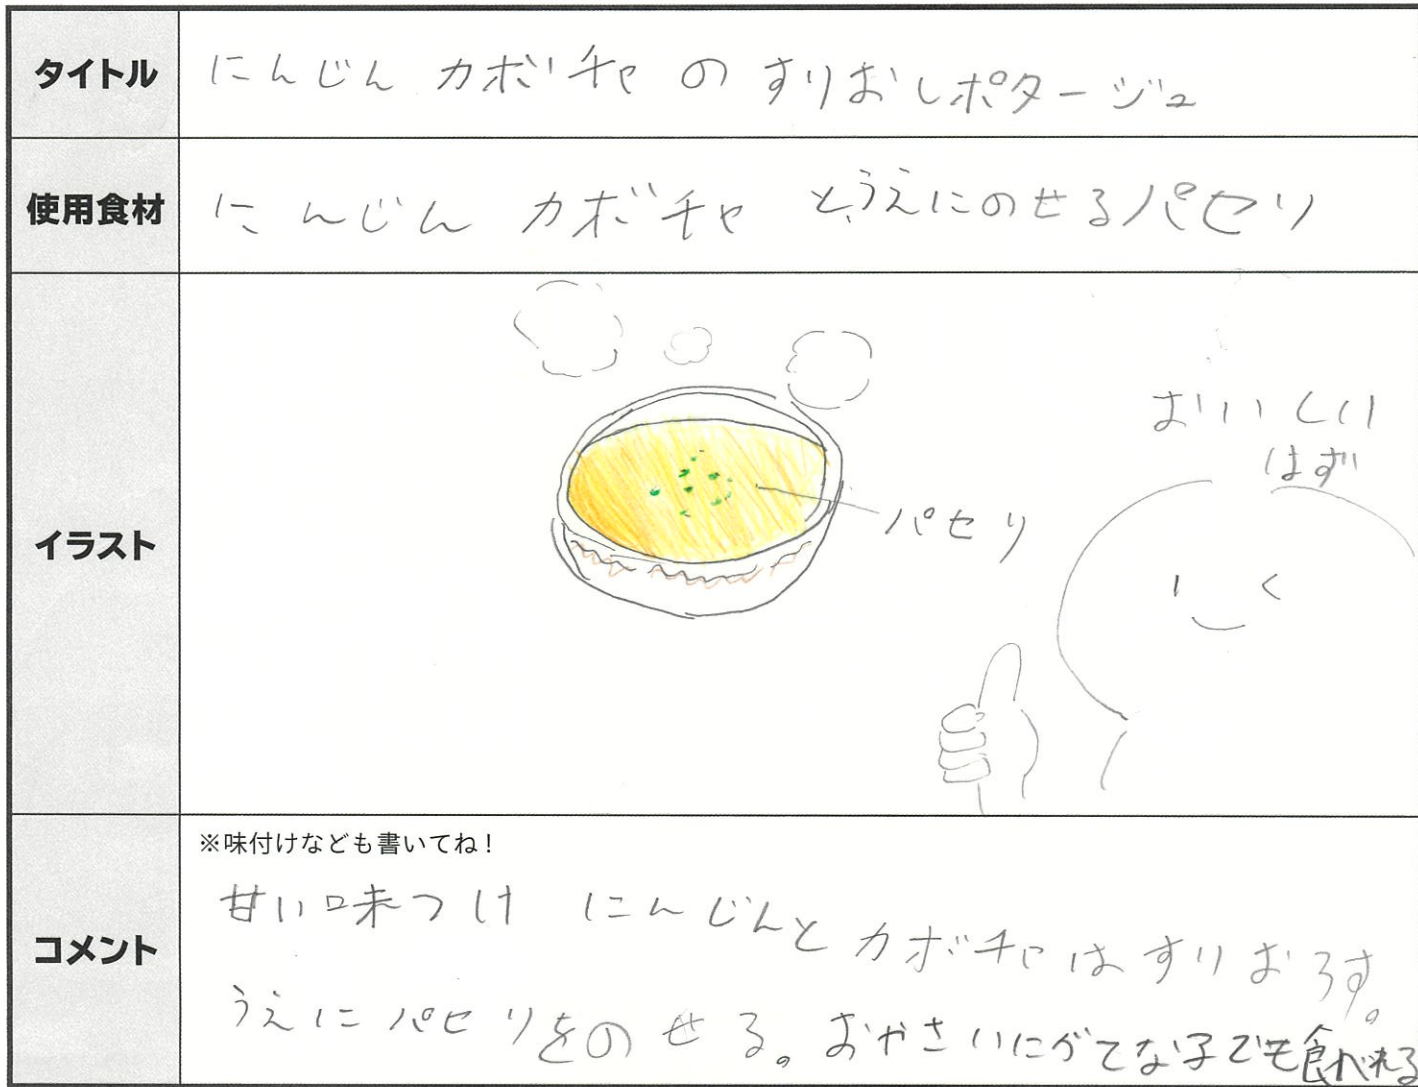 タイトル
にんじん カボチャ の すりおしポタージュ
使用食材
にんじん カボチャ と、うえにのせるパセリ
イラスト
おいしい
はず
パセリ
コメント
※味付けなども書いてね!
甘い味つけ にんじんとカボチャはすりおろす。
うえにパセリをのせる。おやさいにがてな子でも食べれる